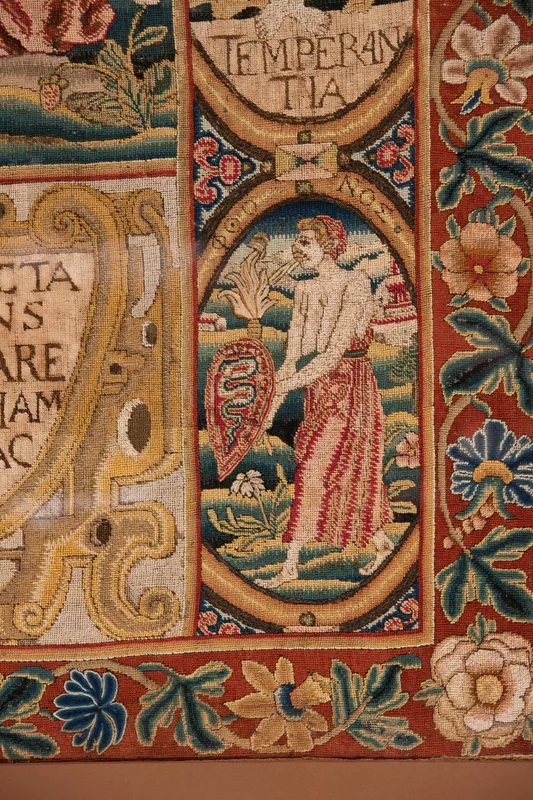 TEMPERAN
TIA
ΦΘΟ ΝΟΣ
CTA
NS
ARE
IAM
AC